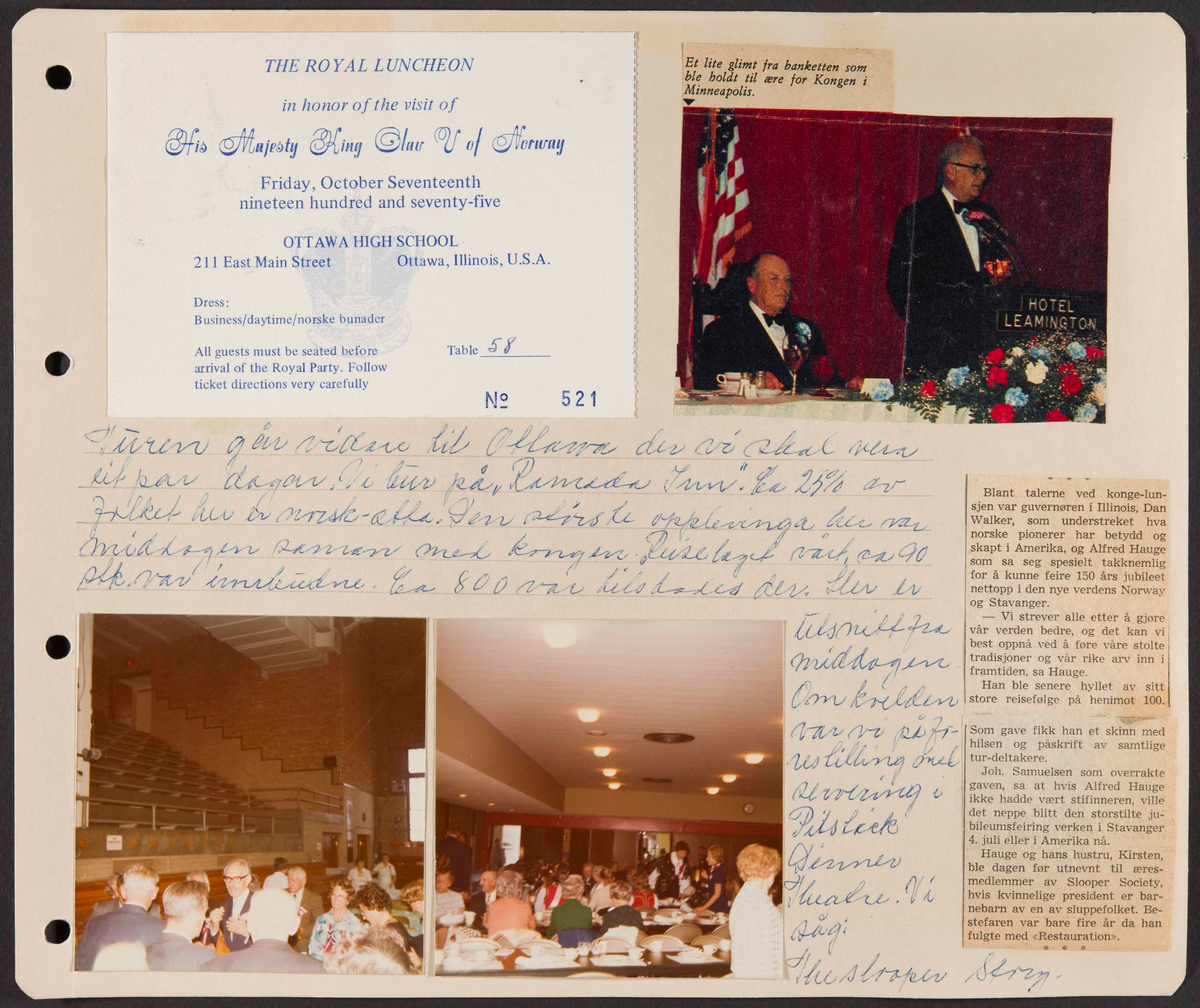 THE ROYAL LUNCHEON
in honor of the visit of
His Majesty King Olav V of Norway
Friday, October Seventeenth
nineteen hundred and seventy-five
OTTAWA HIGH SCHOOL
211 East Main Street Ottawa, Illinois, U.S.A.
Dress:
Business/daytime/norske bunader
All guests must be seated before
arrival of the Royal Party. Follow
ticket directions very carefully
Table 58
No 521
Et lite glimt fra banketten som
ble holdt til ære for Kongen i
Minneapolis.
HOTEL
LEAMINGTON
Turen går vidare til Ottawa der vi skal vera
eit par dagar. Vi bur på "Ramada Inn". Ca 25% av
folket her er norsk-ætta. Den største opplevinga her var
middagen saman med kongen. Reiselaget vårt, ca 90
stk. var innbudne. Ca 800 var tilstades der. Her er
utsnitt fra
middagen
Om kvelden
var vi på fø-
restilling med
servering i
Pitslick
Dinner
Theatre. Vi
såg:
The slooper Story.
Blant talerne ved konge-lun-
sjen var guvernøren i Illinois, Dan
Walker, som understreket hva
norske pionerer har betydd og
skapt i Amerika, og Alfred Hauge
som sa seg spesielt takknemlig
for å kunne feire 150 års jubileet
nettopp i den nye verdens Norway
og Stavanger.
— Vi strever alle etter å gjøre
vår verden bedre, og det kan vi
best oppnå ved å føre våre stolte
tradisjoner og vår rike arv inn i
framtiden, sa Hauge.
Han ble senere hyllet av sitt
store reisefølge på henimot 100.
Som gave fikk han et skinn med
hilsen og påskrift av samtlige
tur-deltakere.
Joh. Samuelsen som overrakte
gaven, sa at hvis Alfred Hauge
ikke hadde vært stifinneren, ville
det neppe blitt den storstilte ju-
bileumsfeiring verken i Stavanger
4. juli eller i Amerika nå.
Hauge og hans hustru, Kirsten,
ble dagen før utnevnt til æres-
medlemmer av Slooper Society,
hvis kvinnelige president er bar-
nebarn av en av sluppefolket. Be-
stefaren var bare fire år da han
fulgte med «Restauration».